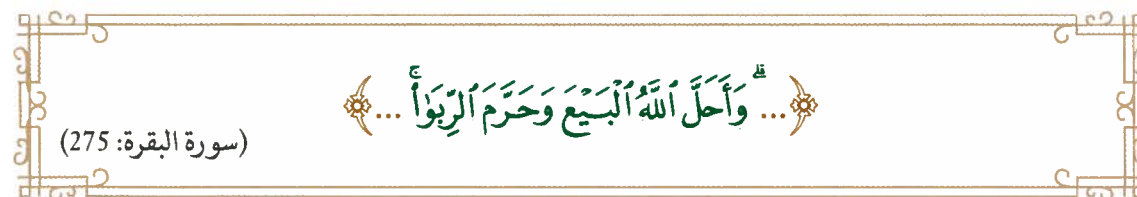 ﴿... ۗ وَأَحَلَّ ٱللَّهُ ٱلْبَيْعَ وَحَرَّمَ ٱلرِّبَوٰا۟ ۚ ...﴾
(سورة البقرة: 275)